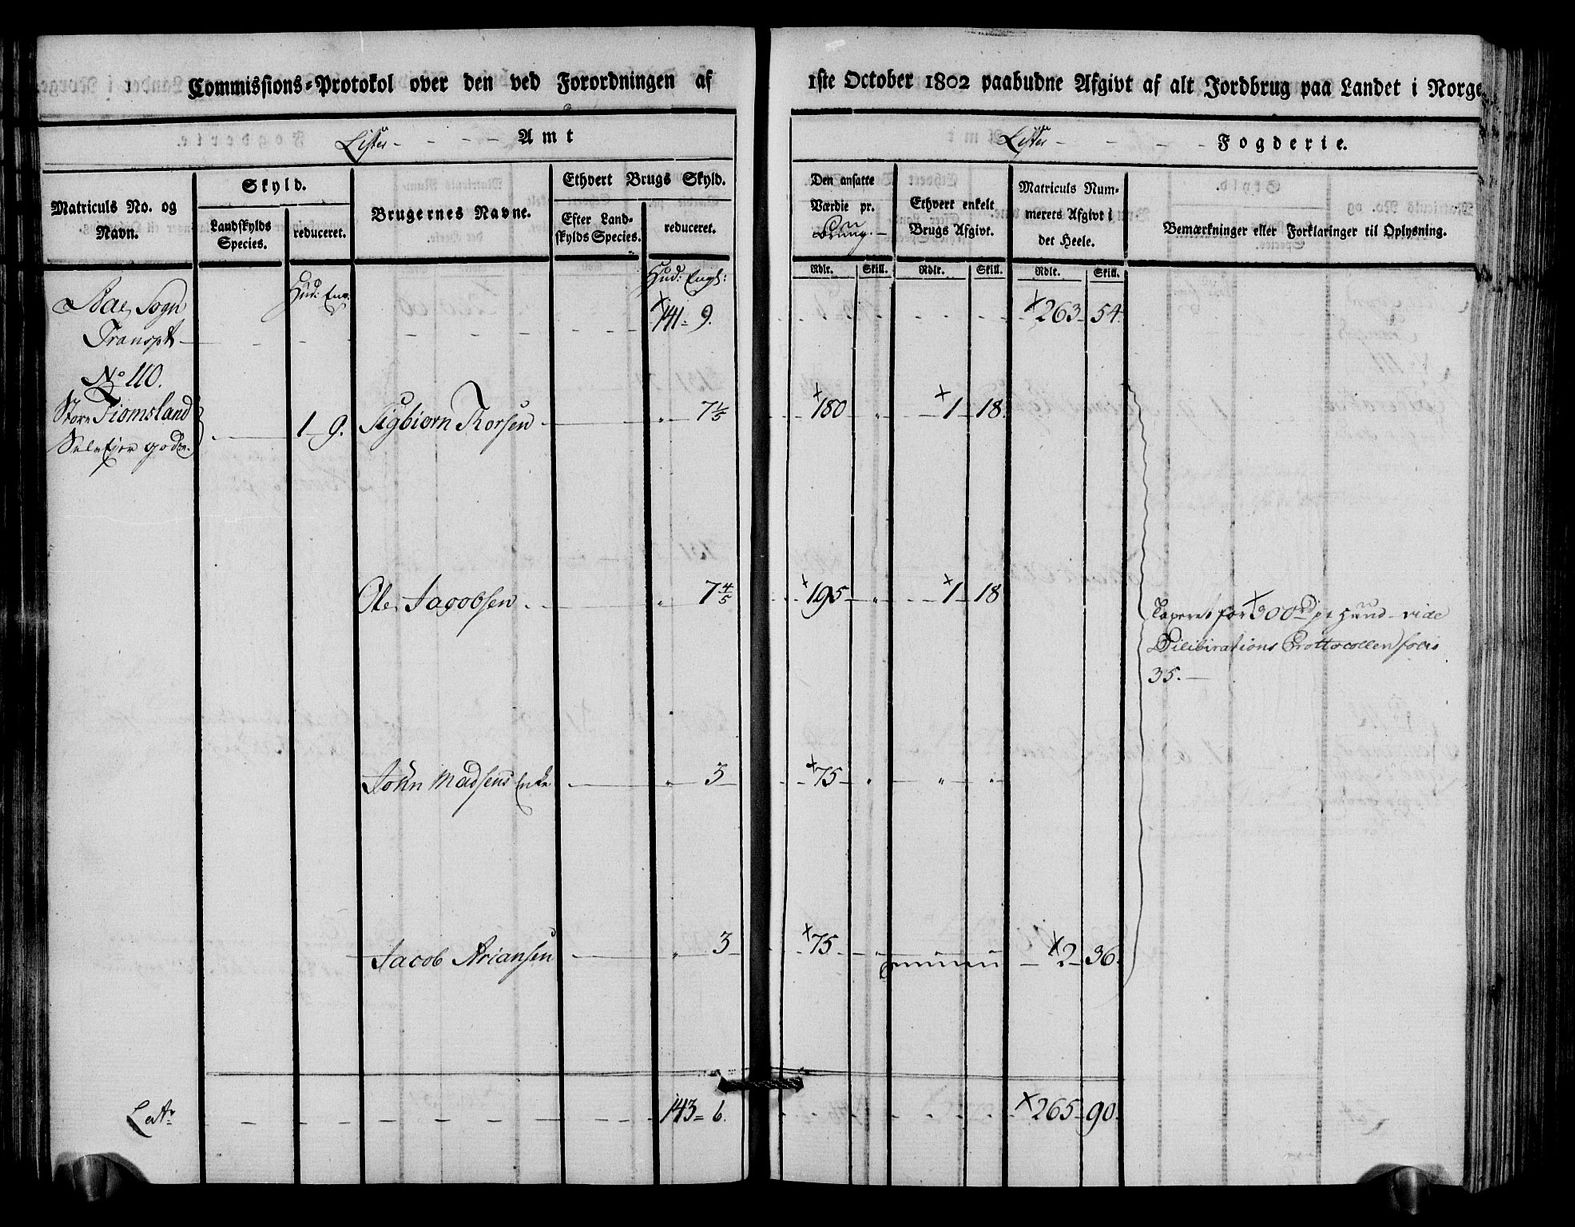 Commissions-Protokol over den ved Forordningen af 1ste October 1802 paabudne Afgivt af alt Jordbrug paa Landet i Norge
Lister - - - - Amt
Lister - - - - Fogderie.
Matriculs No. og Navn.
Skyld.
Landskylds Species.
reduceret.
Brugernes Navne.
Ethvert Brugs Skyld.
Efter Landskylds Species.
reduceret.
Den ansatte Værdie pr.
Ethvert enkelt Brugs Afgivt.
Matriculs Nummerets Afgivt i det Heele.
Bemærkninger eller Forklaringer til Oplysning.
Rdlr. Skill. Rdlr. Skill. Rdlr. Skill.
Hud: Eng.
Hud: Engl:
Aae Sogn
Transpt - - - - - - 141 - 9. - - - - 263 - 54.
No 110.
Store Fiomsland
Selvejer godz. - 1 9. Sigbiørn Thorsen - " 7 1/5 180 " 1 18.
Ole Jacobsen - " 7 4/5 195 " 1 18
Taxeret for 300 rd pr Hud - vide
Delibirations Prottocollen folio
35. -
John Madsens Enke - " 3 75 " " "
Jacob Ariansen - " 3 75 " 2 36.
Latr - - - - - - 143 - 6. 265 - 90.